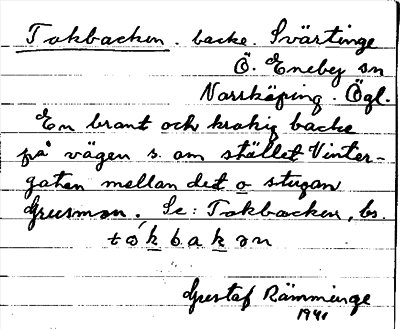 Tokbacken. backe. Svärtinge
Ö. Eneby sn
Norrköping. Ögl.
En brant och krokig backe
på vägen s. om stället Vinter-
gatan mellan det o stugan
Grusmon. Se: Tokbacken, bs.
tókbakən
Gustaf Rämminge
1941